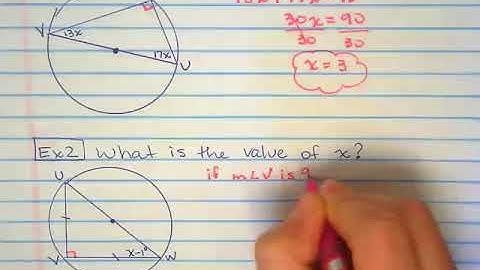 30x = 90
30 30
x = 3
V 13x 17x U
Ex2 What is the value of x?
if m∠V is 9
U
V x-1° W